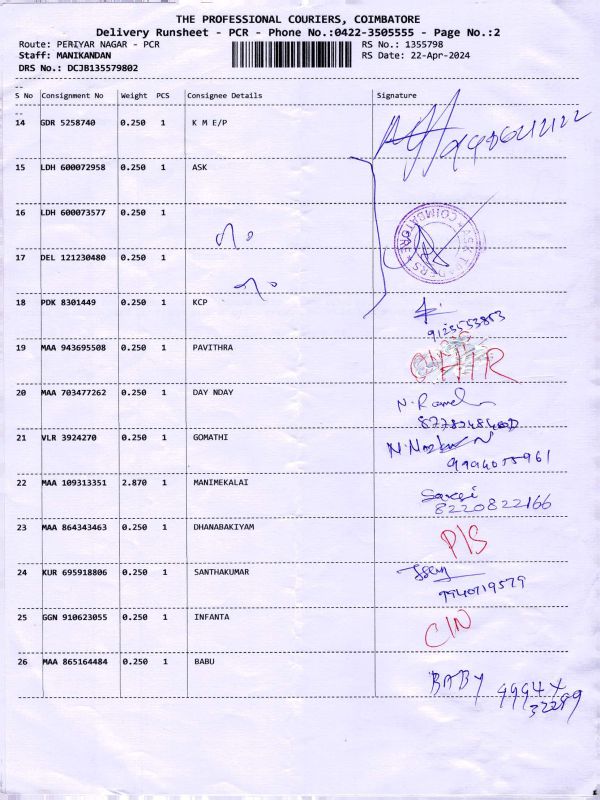 THE PROFESSIONAL COURIERS, COIMBATORE
Delivery Runsheet - PCR - Phone No.:0422-3505555 - Page No.:2
Route: PERIYAR NAGAR - PCR RS No.: 1355798
Staff: MANIKANDAN RS Date: 22-Apr-2024
DRS No.: DCJB135579802
S No Consignment No Weight PCS Consignee Details Signature
14 GDR 5258740 0.250 1 K M E/P
15 LDH 600072958 0.250 1 ASK
16 LDH 600073577 0.250 1
ASK TRADERS * COIMBATORE *
17 DEL 121230480 0.250 1
18 PDK 8301449 0.250 1 KCP
9123553853
19 MAA 943695508 0.250 1 PAVITHRA
20 MAA 703477262 0.250 1 DAY NDAY
21 VLR 3924270 0.250 1 GOMATHI
22 MAA 109313351 2.870 1 MANIMEKALAI
8220822166
23 MAA 864343463 0.250 1 DHANABAKIYAM P/S
24 KUR 695918806 0.250 1 SANTHAKUMAR
9940719579
25 GGN 910623055 0.250 1 INFANTA C/N
26 MAA 865164484 0.250 1 BABU BABY